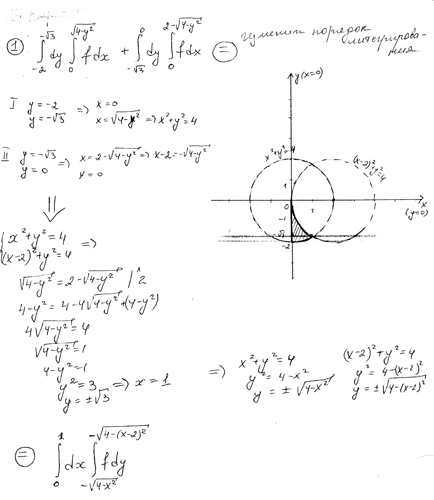 ① ∫_{-2}^{-√3} dy ∫_{0}^{√(4-y²)} f dx + ∫_{-√3}^{0} dy ∫_{0}^{2-√(4-y²)} f dx =
изменим порядок
интегрирова-
ния
I y = -2
y = -√3 => x = 0
x = √(4-y²) => x²+y² = 4
II y = -√3
y = 0 => x = 2-√(4-y²) => x-2 = -√(4-y²)
x = 0
⇓
{ x²+y² = 4
(x-2)²+y² = 4 =>
√(4-y²) = 2-√(4-y²) |^2
4-y² = 4-4√(4-y²)+(4-y²)
4√(4-y²) = 4
√(4-y²) = 1
4-y² = 1
y² = 3
y = ±√3 => x = 1
y(x=0)
x²+y²=4
(x-2)²+y²=4
1
0
1
x
(y=0)
-1
-√3
-2
=> x²+y² = 4
y² = 4-x²
y = ±√(4-x²)
(x-2)²+y² = 4
y² = 4-(x-2)²
y = ±√(4-(x-2)²)
= ∫_{0}^{1} dx ∫_{-√(4-x²)}^{-√(4-(x-2)²)} f dy